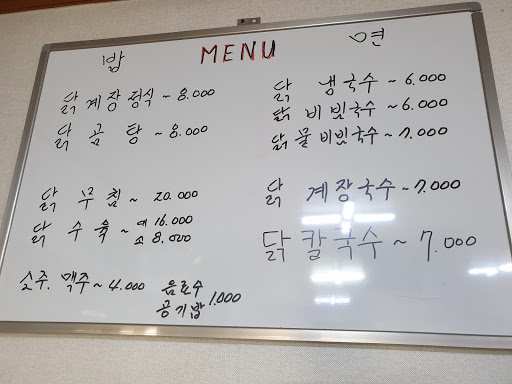 MENU
밥
닭 계장정식 ~ 8.000
닭 곰 탕 ~ 8.000
닭 무 침 ~ 20.000
닭 수 육 ~ 대 16.000
소 8.000
소주. 맥주 ~ 4.000
음료수
공기밥 1.000
면
닭 냉국수 ~ 6.000
닭 비빔국수 ~ 6.000
닭 물비빔국수 ~ 7.000
닭 계장국수 ~ 7.000
닭 칼국수 ~ 7.000